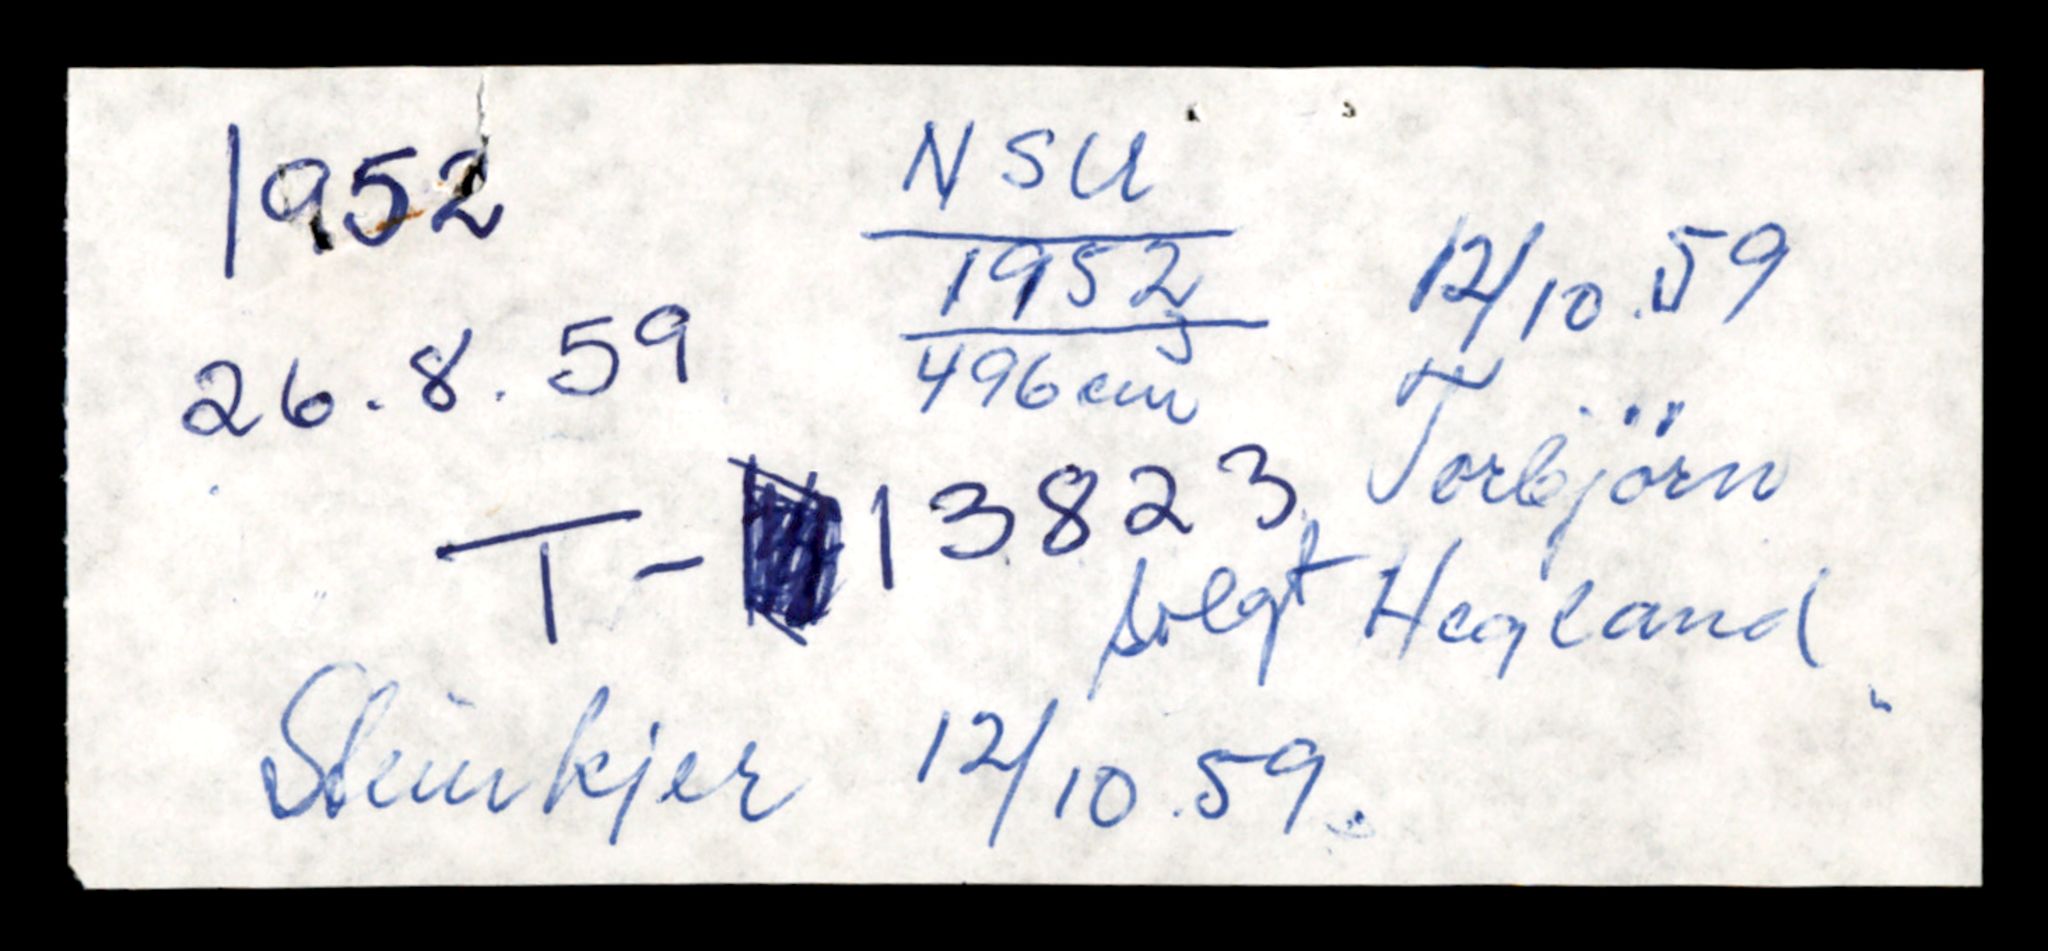 1952
26.8.59
T-13823
NSU
1952
496 cm³
12/10.59
Torbjörn
solgt Hegland
Steinkjer 12/10.59.